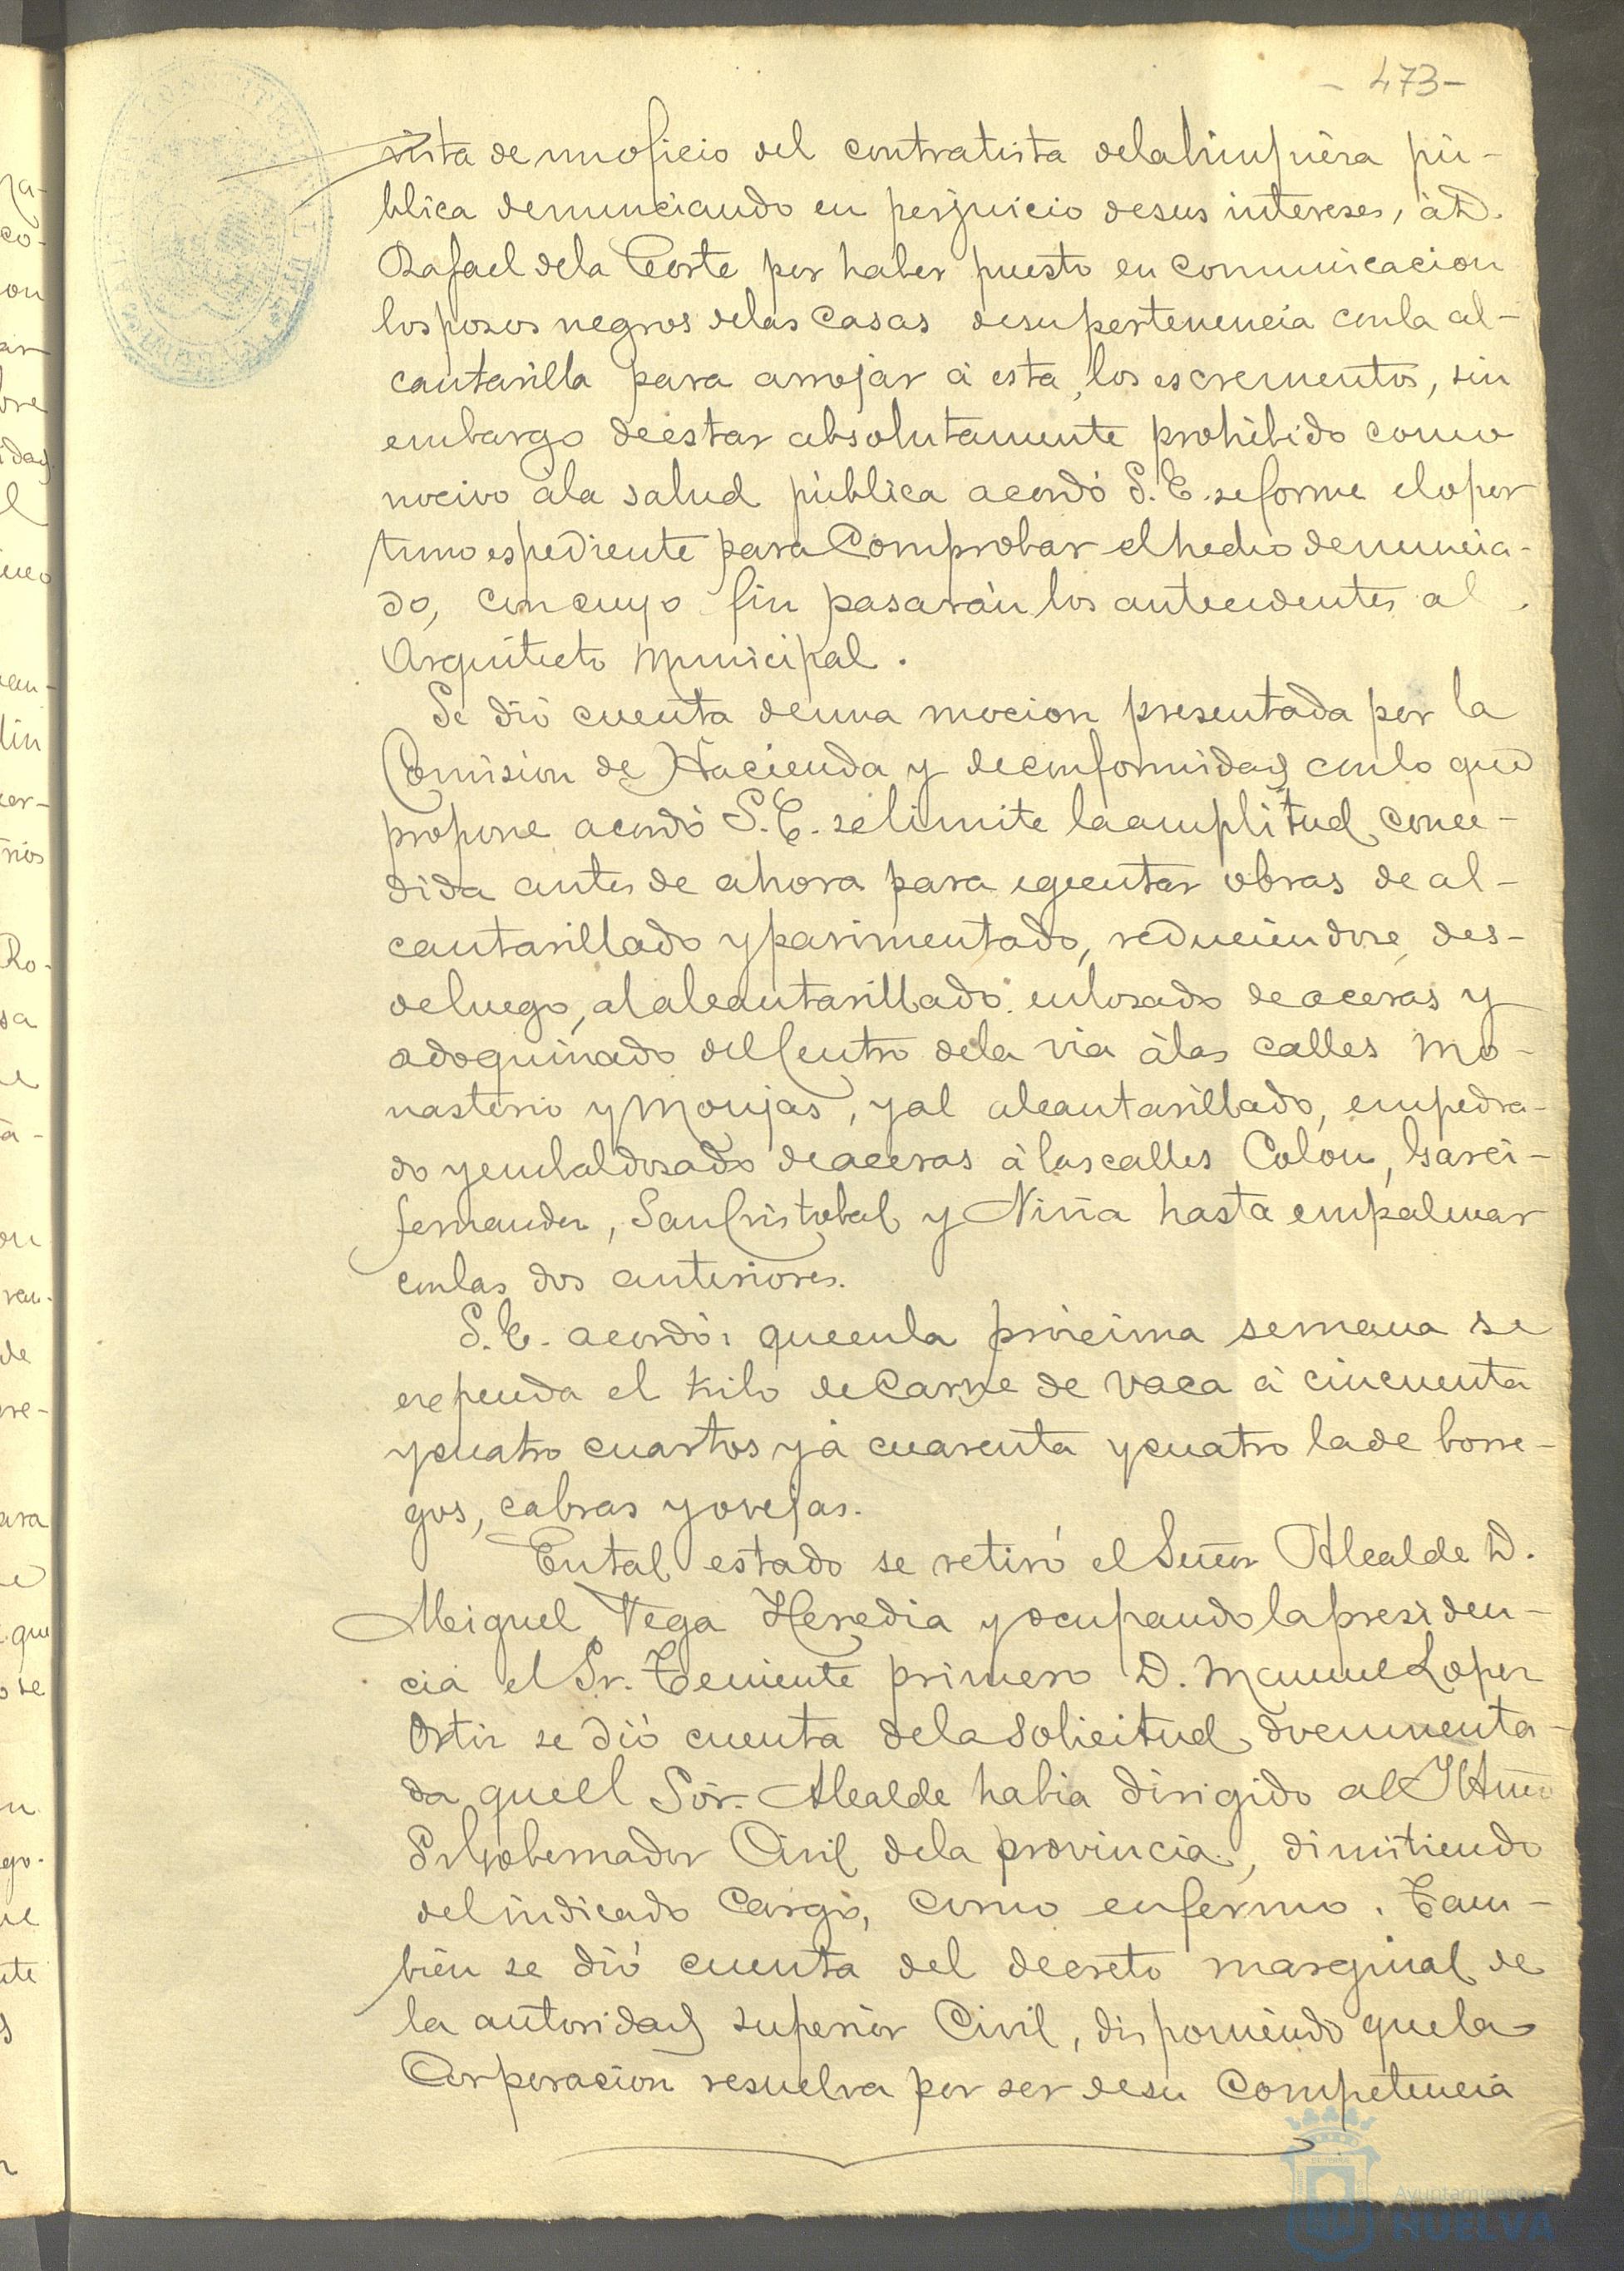 - 473 -
vista de un oficio del contratista de la limpiéza pú-
blica denunciando en perjuicio de sus intereses, á D.
Rafael de la Corte por haber puesto en comunicacion
los posos negros de las casas de su pertenencia con la al-
cantarilla para arrojar á esta, los escrementos, sin
embargo de estar absolutamente prohibido como
nocivo á la salud pública acordó S. E. se forme el opor
tuno espediente para Comprobar el hecho denuncia-
do, con cuyo fin pasarán los antecedentes al
Arquitecto Municipal.
Se dió cuenta de una mocion presentada por la
Comision de Hacienda y de conformidad con lo que
propone acordó S. E. se limite la amplitud conce-
dida antes de ahora para egecutar obras de al-
cantarillado y pavimentado, reduciendose, des-
de luego, al alcantarillado enlosado de aceras y
adoquinado del Centro de la via á las calles Mo-
nasterio y Monjas, y al alcantarillado, empedra-
do y embaldosado de aceras á las calles Colon, Garci-
fernandez, San Cristobal y Niña hasta empalmar
con las dos anteriores.
S. E. acordó: que en la próxima semana se
expenda el kilo de Carne de vaca á cincuenta
y cuatro cuartos y á cuarenta y cuatro la de borre-
gos, cabras y ovejas.
En tal estado se retiró el Señor Alcalde D.
Miguel Vega Heredia y ocupando la presiden-
cia el Sr. Teniente primero D. Manuel Lopez
Ortiz se dió cuenta de la Solicitud documenta-
da que el Sór. Alcalde habia dirigido al Iltmo
Sr Gobernador Civil de la provincia, dimitiendo
del indicado Cargo, como enfermo. Tam-
bién se dió cuenta del decreto marginal de
la autoridad superior Civil, disponiendo que la
Corporacion resuelva por ser de su Competencia
Ayuntamiento de
HUELVA